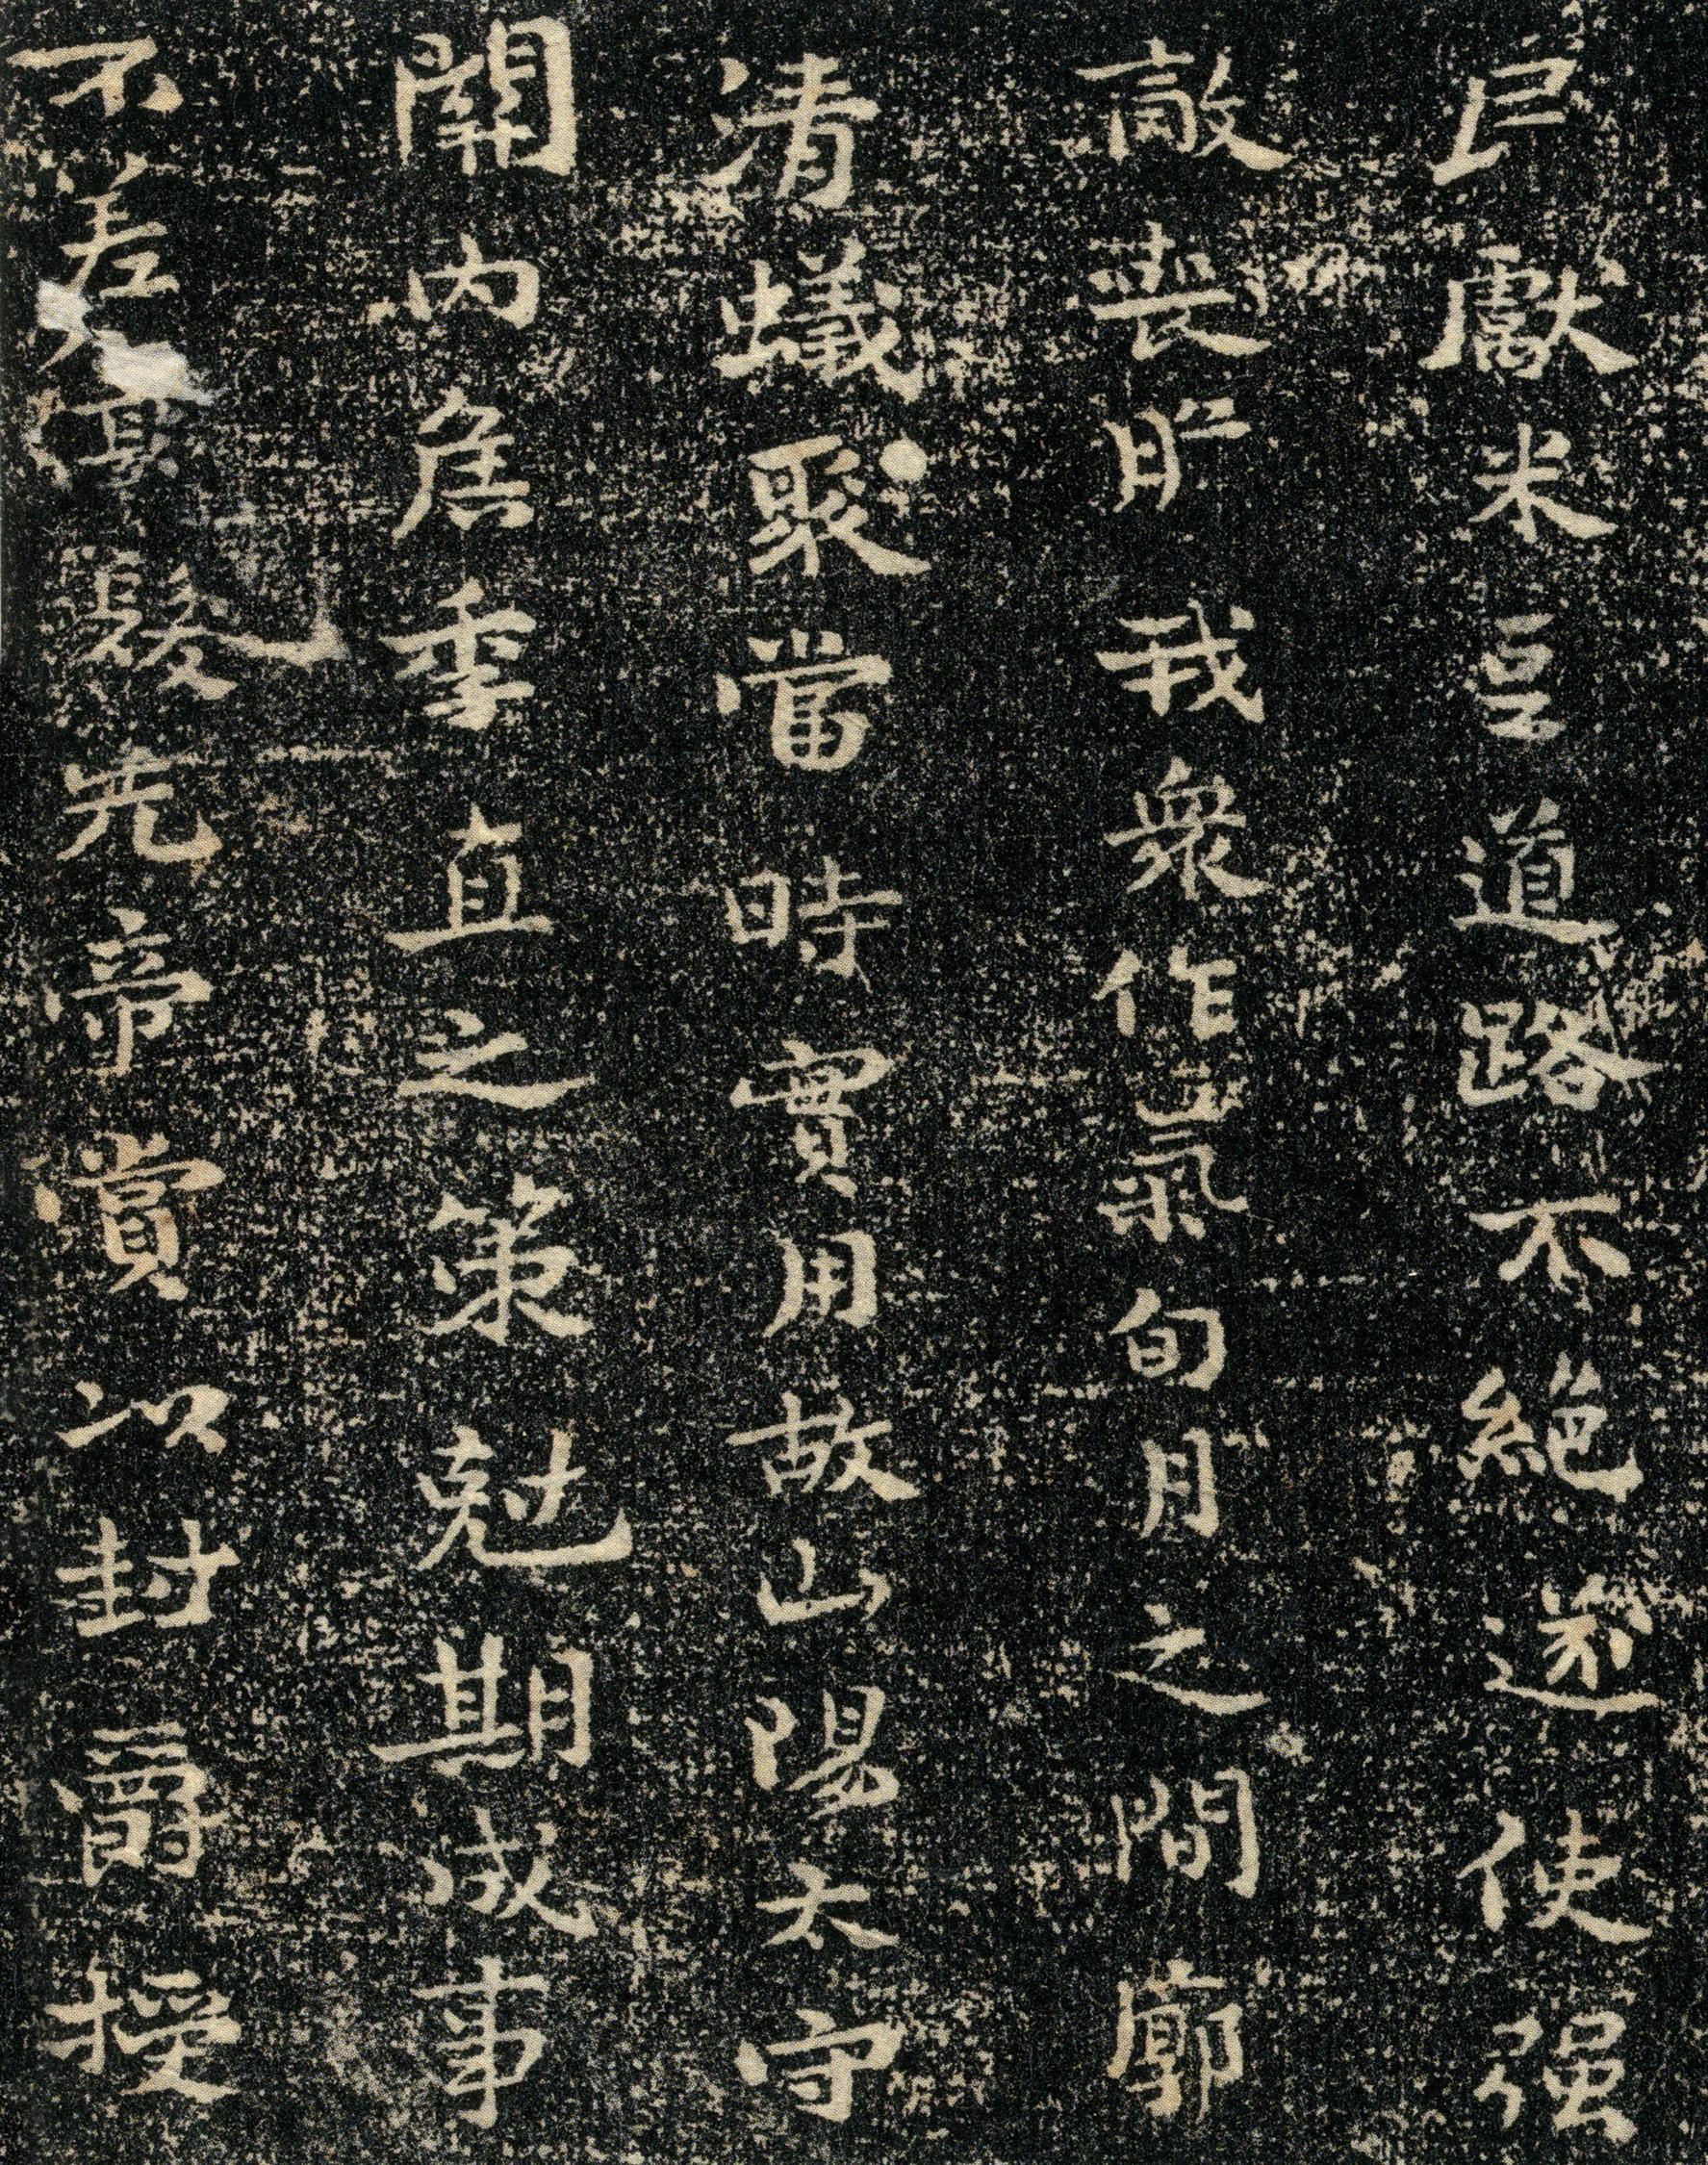 民獻米豆道路不絶遂使强
敵喪膽我衆作氣旬月之間廓
清蟻聚當時實用故山陽太守
關内侯季直之策尅期成事
不差豪髮先帝賞以封爵授